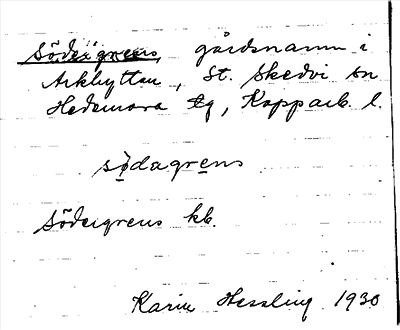 Södergrens, gårdsnamn i
Arkhyttan, St. Skedvi sn
Hedemora tg, Kopparb. l.
sὁdagrens
Södergrens kb.
Karin Hessling 1930